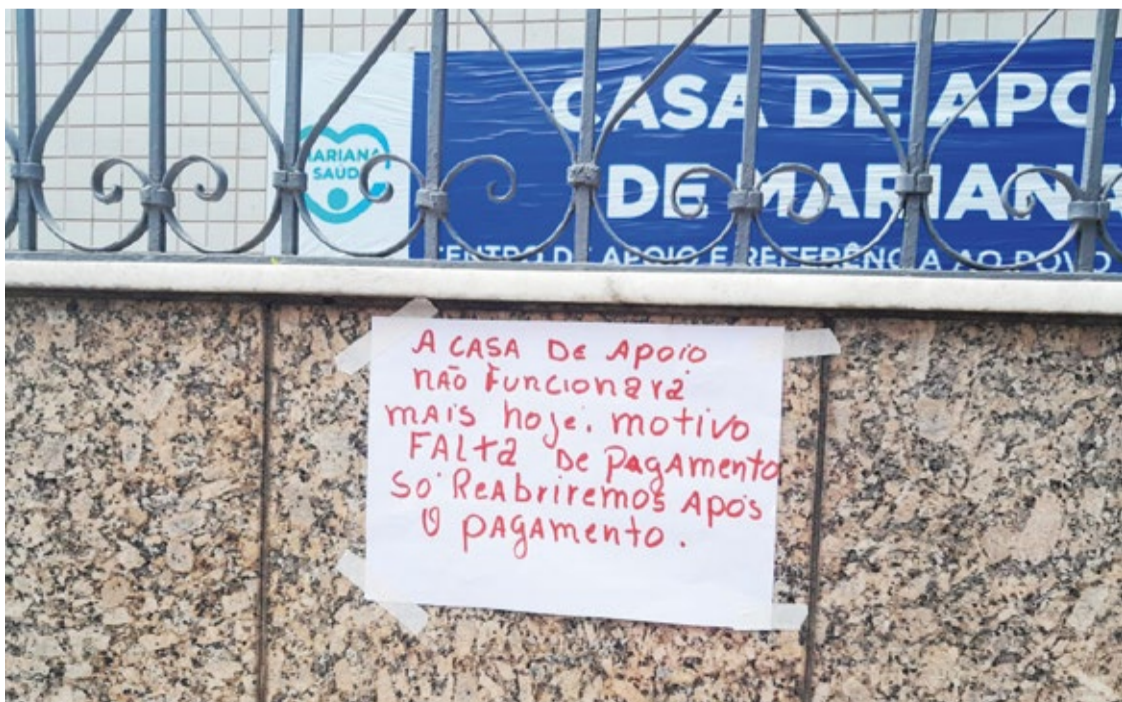 MARIANA
SAÚD
CASA DE APO
DE MARIANA
CENTRO DE APOIO E REFERÊNCIA AO POVO
A CASA DE APOIO
NÃO FUNCIONARÁ
MAIS hoje. motivo
FALTA DE PAGAMENTO
SÓ REABRIREMOS APÓS
O PAGAMENTO.